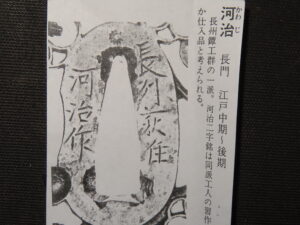 かわじ
河治 長門 江戸中期～後期
長州鐔工群の一派。河治二字銘は同派工人の習作
か仕入品と考えられる。
長州萩住
河治作